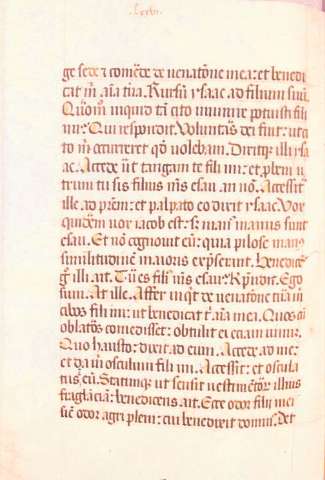 lxxvi.
ge sede ⁊ comede de venatōne mea: et benedi
cat m̄ aīa tua. Rursū ysaac ad filium suū.
Quōm̄ inquid tā cito inuenire potuisti fili
mi: Qui respondit. Voluntas dei fuit: ut ci
to m̄ occurreret qd̄ volebam. Dixitqꝫ illi ysa
ac. Accede ut tangam te fili mi: et ꝓbem u
trum tu sis filius m̄s esau an nō. Accessit
ille ad prem: et palpato eo dixit ysaac. Vox
quidem vox iacob est: sꝫ manꝰ manus sunt
esau. Et nō cognouit eū: quia pilose manꝰ
similitudinē maioris exp̄serant. Benedicēs
gͦ illi ait. Tu es filiꝰ m̄s esau: Rn̄dit. Ego
sum. At ille. Affer inqͥt de venatōne tua m̄
cibos fili mi: ut benedicat t̄ aīa mea. Quos cū
oblatos comedisset: obtulit ei eciam vinū.
Quo hausto: dixit ad eum. Accede ad me:
et da m̄ osculum fili mi. Accessit: et oscula
tus ē eū. Statimqꝫ ut sensit vestimētoꝝ illius
fraglāciā: benedicens ait. Ecce odor filij mei
sic̄ odor agri pleni: cui benedixit dominus. Det